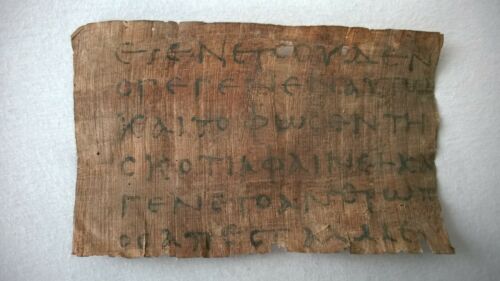 ΕΓΕΝΕΤΟΟΥΔΕΝ
ΟΓΕΓΕΝΕΝΑΥΤΩ
ΚΑΙΤΟΦΩϹΕΝΤΗ
ϹΚΟΤΙΑΦΑΙΝΕΙΚΑ
ΓΕΝΕΤΟΑΝΘΡΩΠ
ΟϹΑΠΕϹΤΑΛΜΕ